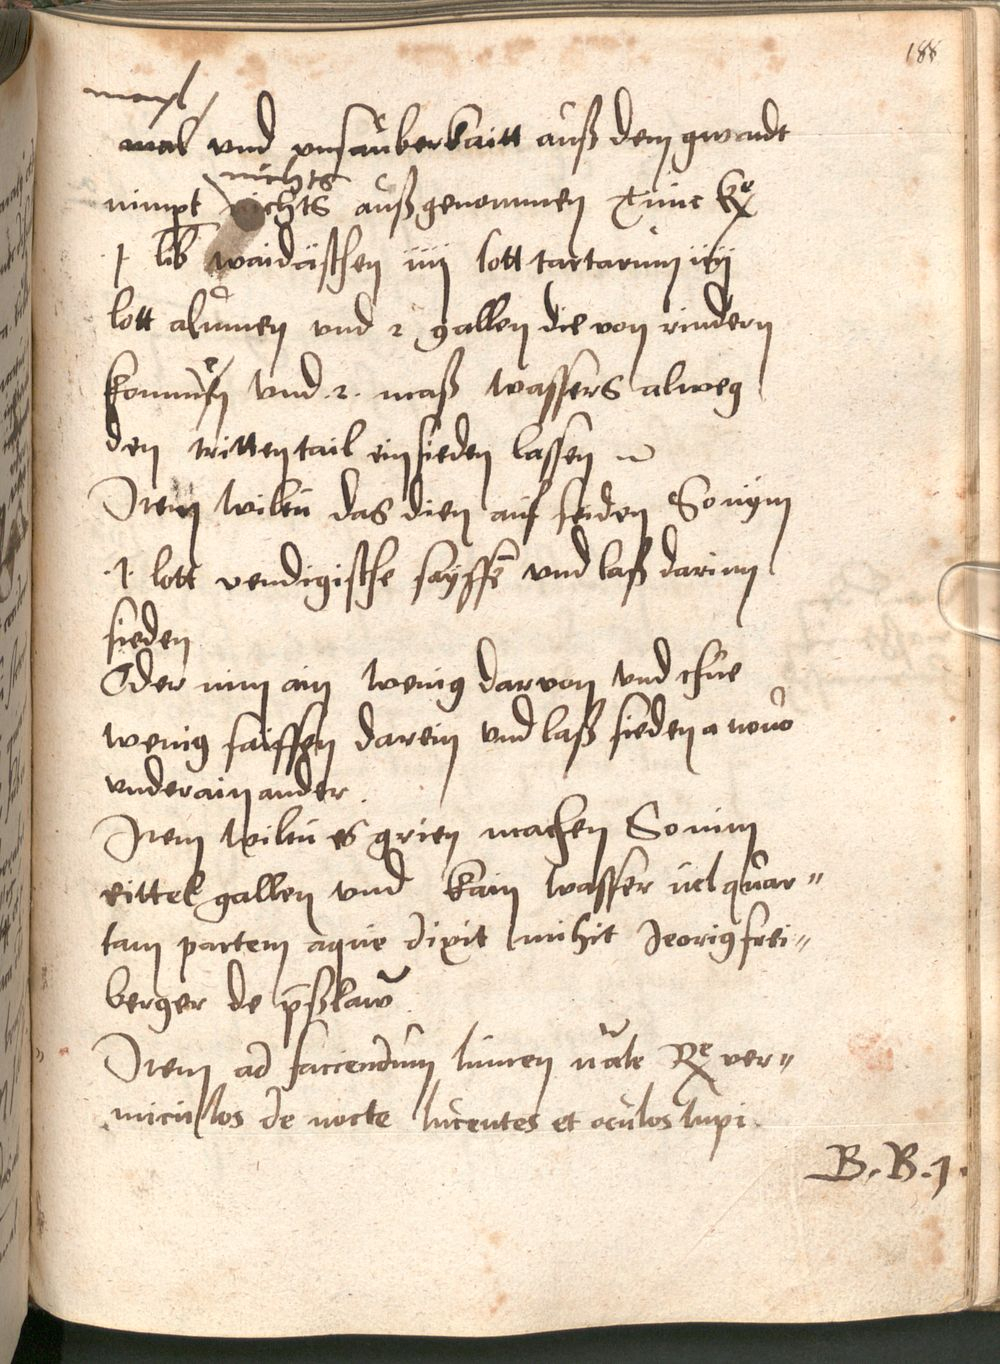 188
mayl
mal und unsauberkaitt auß dem gwandt
nichts
nimpt nichts außgenommen Tunc Re
1 lib waidäschen iiii lott tartarum iiii
lott alumen vnd 2 gallen die von rindern
kommen vnd .2. maß wassers alweg
den tritten tail einsieden lassen
Item wiltu das dien auf seiden So nym
.1. lott vendigische sayffe vnd laß darinn
sieden
Oder nim ain wenig darvon vnd thue
wenig saiffen darein vnd laß sieden a novo
vnderainander.
Item wiltu es grien machen So nim
eittel gallen vnd kain wasser vel quar„
tam partem aque dixit mihit Jeorig frei„
berger de p̄ßlaw
Item ad faciendum lumen n̄ale Re ver„
miculos de nocte lucentes et oculos lupi.
B. B. 1.